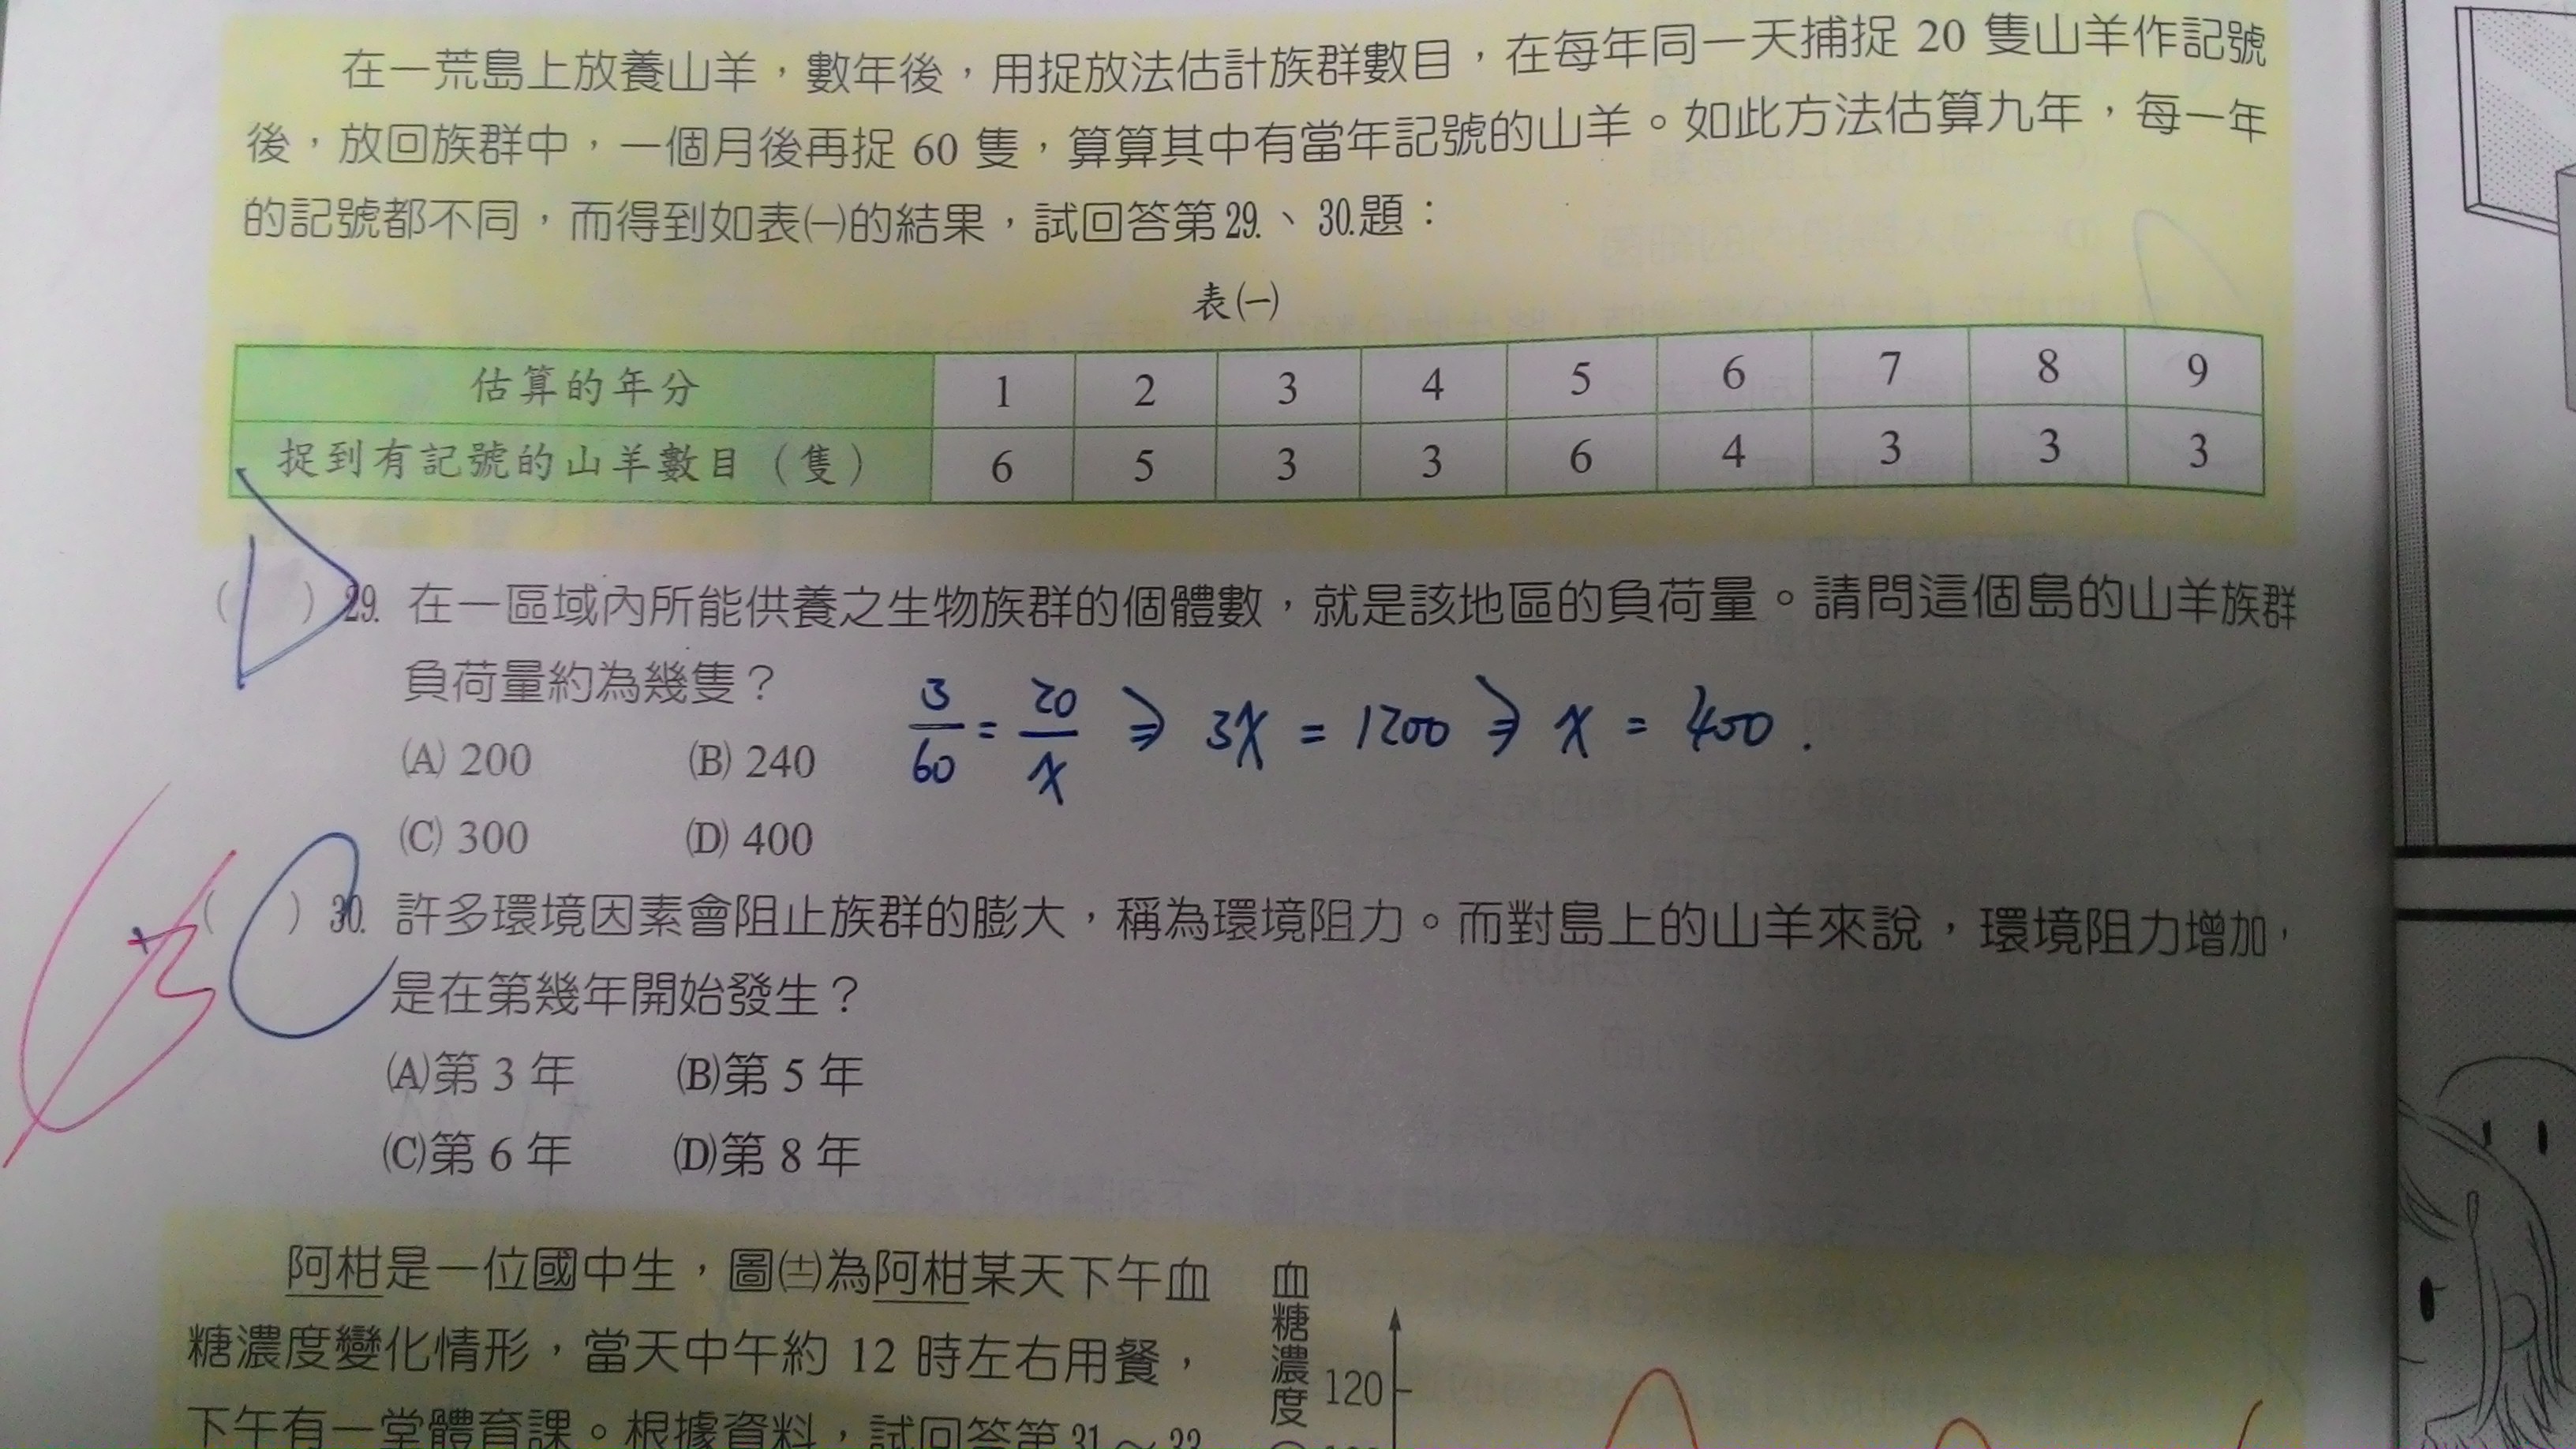 在一荒島上放養山羊，數年後，用捉放法估計族群數目，在每年同一天捕捉 20 隻山羊作記號
後，放回族群中，一個月後再捉 60 隻，算算其中有當年記號的山羊。如此方法估算九年，每一年
的記號都不同，而得到如表㈠的結果，試回答第29.、30.題：
表㈠
估算的年分 1 2 3 4 5 6 7 8 9
捉到有記號的山羊數目（隻） 6 5 3 3 6 4 3 3 3
( D ) 29. 在一區域內所能供養之生物族群的個體數，就是該地區的負荷量。請問這個島的山羊族群
負荷量約為幾隻？
3/60 = 20/x ⇒ 3x = 1200 ⇒ x = 400 .
(A) 200 (B) 240
(C) 300 (D) 400
( C ) 30. 許多環境因素會阻止族群的膨大，稱為環境阻力。而對島上的山羊來說，環境阻力增加，
是在第幾年開始發生？
(A)第 3 年 (B)第 5 年
(C)第 6 年 (D)第 8 年
阿柑是一位國中生，圖㈩為阿柑某天下午血
糖濃度變化情形，當天中午約 12 時左右用餐，
下午有一堂體育課。根據資料，試回答第31.～33.
血糖濃度
120